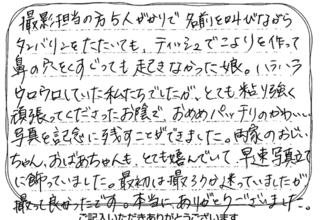 撮影担当の方5人がかりで名前を叫びながら
タンバリンをたたいても、ティッシュでこよりを作って
鼻の穴をくすぐっても起きなかった娘。ハラハラ
ウロウロしていた私たちでしたが、とても粘り強く
頑張ってくださったお陰で、おめめパッチリのかわいい
写真を記念に残すことができました。両家のおじい
ちゃん、おばあちゃんも、とても喜んでいて、早速写真立て
に飾っていました。最初は撮ろうか迷っていましたが
撮って良かったです。本当にありがとうございました。
ご記入いただきありがとうございます